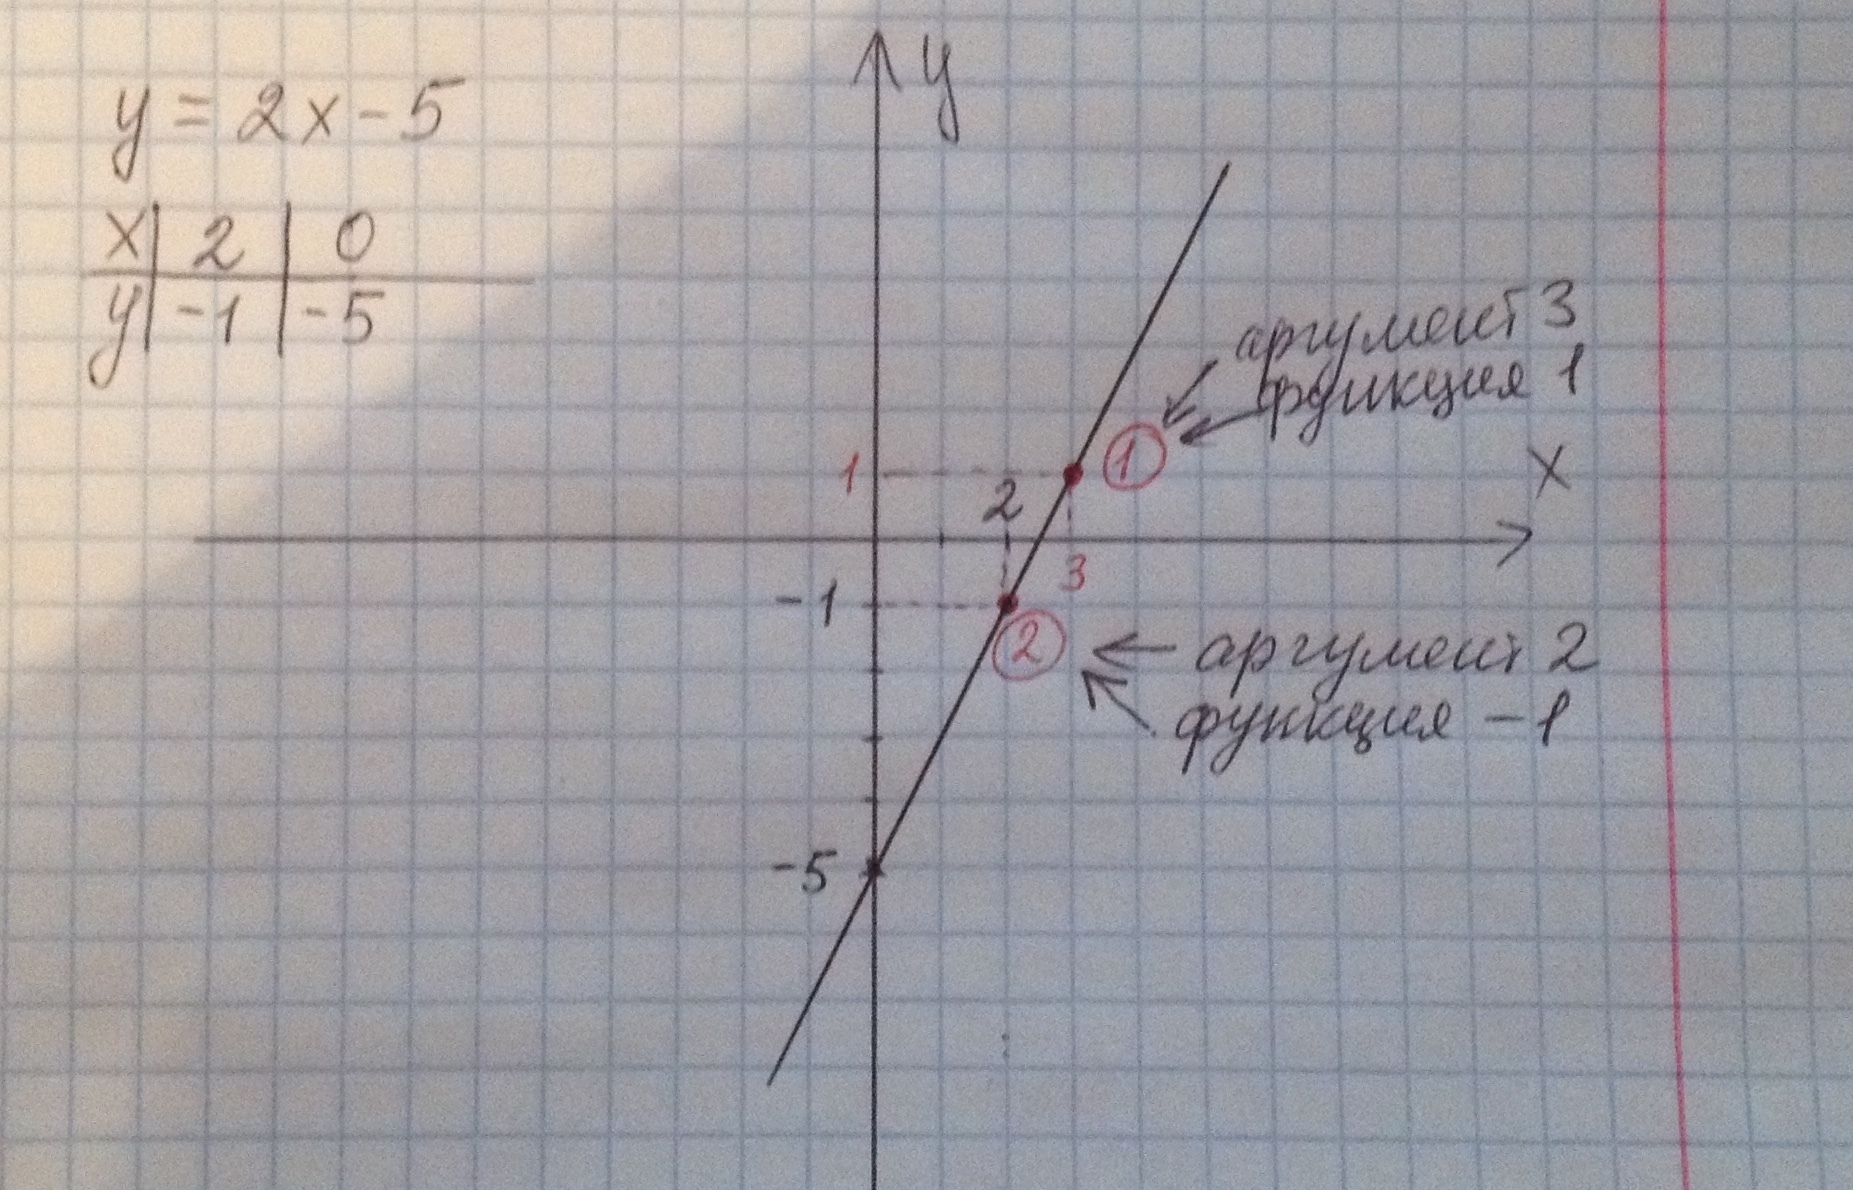 y = 2x - 5
x | 2 | 0
y | -1 | -5
y
аргумент 3
функция 1
1
①
x
2
3
-1
②
аргумент 2
функция -1
-5